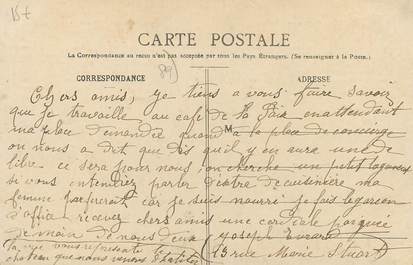 15+
CARTE POSTALE
La Correspondance au recto n'est pas acceptée par tous les Pays Étrangers. (Se renseigner à la Poste.)
CORRESPONDANCE
ADRESSE
Chers amis, je tiens a vous faire savoir
que je travaille, au café de la Paix enattendant
ma place demandée quand a la place de concierge
on nous a dit que dis quil y en aura une de
libre ce sera pour nous, on cherche un ptit logement
si vous entendiez parler dêtre de cuisinière ma
femme car je suis nourri je fais le garcon
d'office recevez chers amis une cordiale poignée
de main à nous deux Joseph
13 rue Marie Stuart
vous représente le
chateau que nous venons